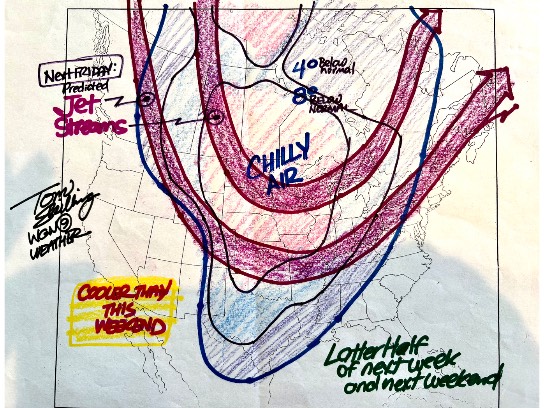 4° Below
normal
Next FRIDAY:
Predicted
Jet
Streams
8° BELOW
NORMAL
CHILLY
AIR
Tom
Skilling
WGN 9
WEATHER
COOLER THAN
THIS
WEEKEND
Latter Half
of next week
and next weekend